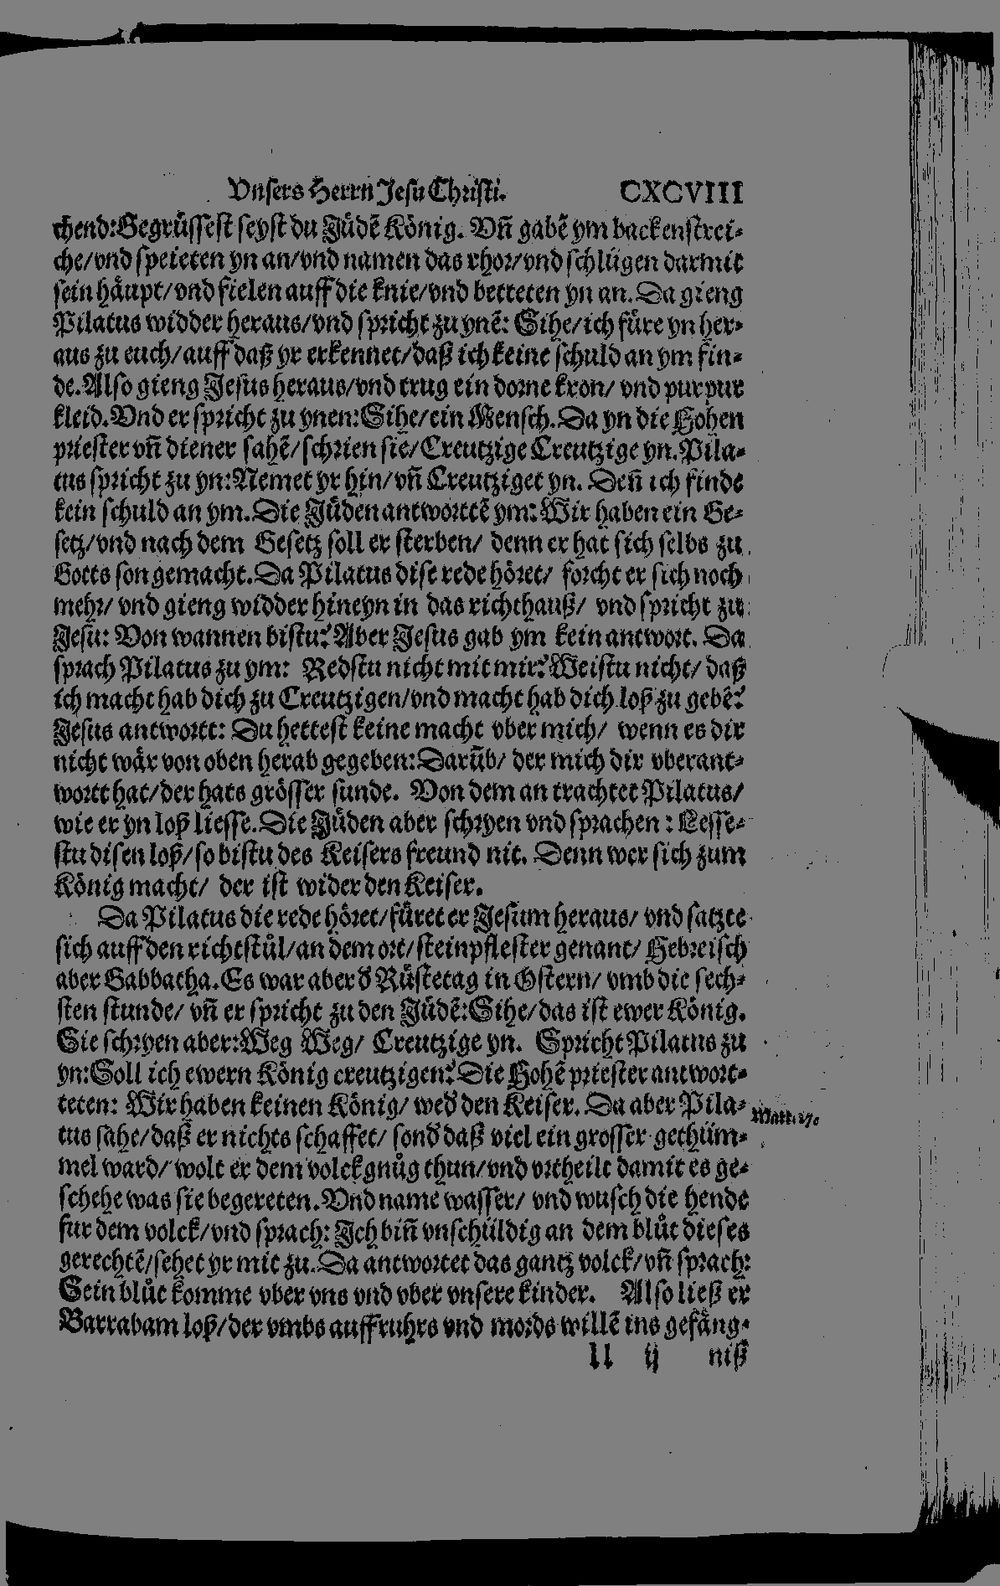 Vnsers Herrn Jesu Christi. CXCVIII
chend:Gegrüssest seyst du Jüdē König. Vñ gabē ym backenstrei-
che/vnd speieten yn an/vnd namen das rhor/vnd schlügen darmit
sein häupt/vnd fielen auff die knie/vnd betteten yn an. Da gieng
Pilatus widder heraus/vnd spricht zu ynē: Sihe/ich füre yn her-
aus zu euch/auff daß yr erkennet/daß ich keine schuld an ym fin-
de. Also gieng Jesus heraus/vnd trug ein dorne kron/ vnd purpur
kleid. Vnd er spricht zu ynen:Sihe/ein Mensch. Da yn die Hohen
priester vñ diener sahē/schrien sie/Creutzige Creutzige yn. Pila-
tus spricht zu yn:Nemet yr hin/vñ Creutziget yn. Deñ ich finde
kein schuld an ym. Die Jüden antwortē ym: Wir haben ein Ge-
setz/vnd nach dem Gesetz soll er sterben/ denn er hat sich selbs zu
Gotts son gemacht. Da Pilatus dise rede höret/ forcht er sich noch
mehr/ vnd gieng widder hineyn in das richthauß/ vnd spricht zu
Jesu: Von wannen bistu? Aber Jesus gab ym kein antwort. Da
sprach Pilatus zu ym: Redstu nicht mit mir? Weistu nicht/ daß
ich macht hab dich zu Creutzigen/vnd macht hab dich loß zu gebē?
Jesus antwortt: Du hettest keine macht vber mich/ wenn es dir
nicht wär von oben herab gegeben:Darüb/ der mich dir vberant-
wortt hat/der hats grösser sunde. Von dem an trachtet Pilatus/
wie er yn loß liesse. Die Jüden aber schryen vnd sprachen: Lesse-
stu disen loß/so bistu des Keisers freund nit. Denn wer sich zum
König macht/ der ist wider den Keiser.
Da Pilatus die rede höret/füret er Jesum heraus/ vnd satzte
sich auff den richtstůl/an dem ort/steinpflester genant/ Hebreisch
aber Gabbatha. Es war aber d̕ Rüstetag in Ostern/ vmb die sech-
sten stunde/ vñ er spricht zu den Jüdē:Sihe/das ist ewer König.
Sie schryen aber:Weg Weg/ Creutzige yn. Spricht Pilatus zu
yn:Soll ich ewern König creutzigen? Die Hohē priester antwort-
teten: Wir haben keinen König/ wed̕ den Keiser. Da aber Pila-
Matt. 27.
tus sahe/daß er nichts schaffet/ sond̕ daß viel ein grosser gethüm-
mel ward/ wolt er dem volck gnůg thun/vnd vrtheilt damit es ge-
schehe was sie begereten. Vnd name wasser/ vnd wusch die hende
fur dem volck/vnd sprach: Ich biñ vnschüldig an dem blůt dieses
gerechtē/sehet yr mit zu. Da antwortet das gantz volck/vñ sprach:
Sein blůt komme vber vns vnd vber vnsere kinder. Also ließ er
Barrabam loß/der vmbs auffruhrs vnd mords willē ins gefäng-
ll ij niß